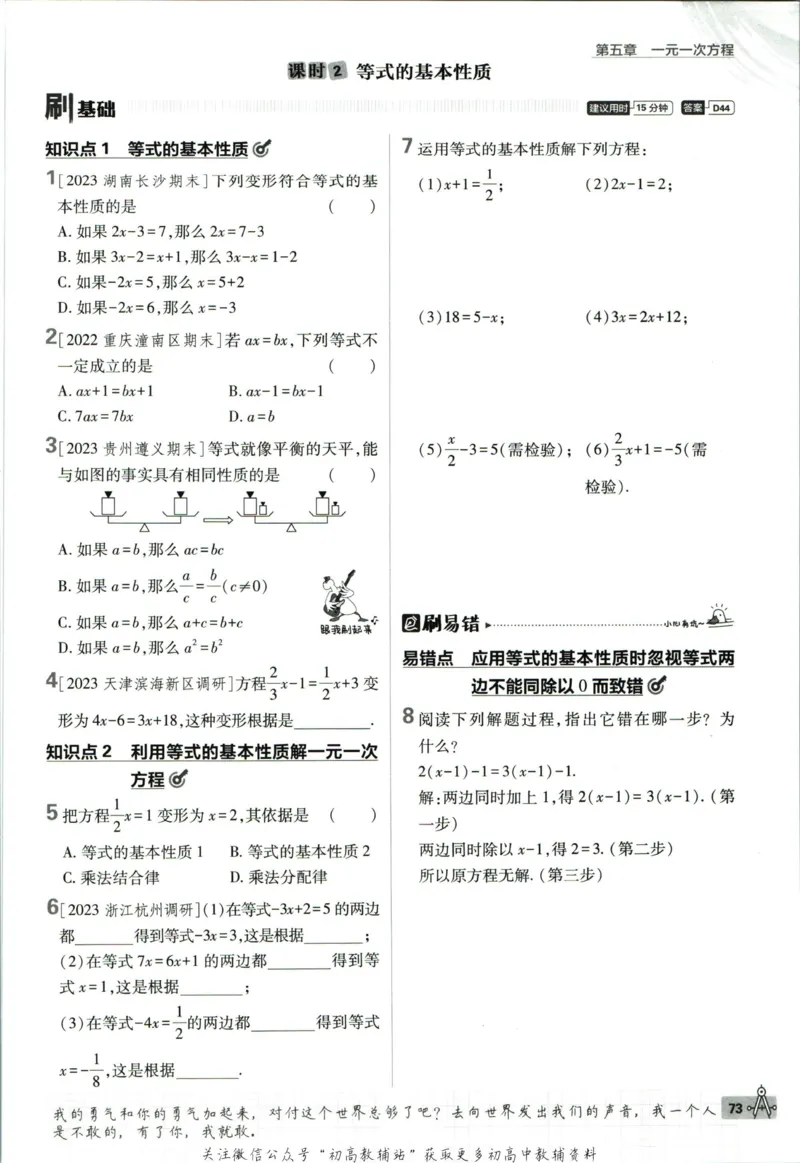 第五章 一元一次方程
课时2 等式的基本性质
刷基础
建议用时 15分钟 答案 D44
知识点1 等式的基本性质
1[2023 湖南长沙期末]下列变形符合等式的基
本性质的是 ( )
A. 如果 2x-3=7,那么 2x=7-3
B. 如果 3x-2=x+1,那么 3x-x=1-2
C. 如果-2x=5,那么 x=5+2
D. 如果-2x=6,那么 x=-3
2[2022 重庆潼南区期末]若 ax=bx,下列等式不
一定成立的是 ( )
A. ax+1=bx+1 B. ax-1=bx-1
C. 7ax=7bx D. a=b
3[2023 贵州遵义期末]等式就像平衡的天平,能
与如图的事实具有相同性质的是 ( )
A. 如果 a=b,那么 ac=bc
B. 如果 a=b,那么 a/c=b/c(c≠0)
C. 如果 a=b,那么 a+c=b+c
D. 如果 a=b,那么 a²=b²
跟我刷起来
4[2023 天津滨海新区调研]方程 2/3x-1=1/2x+3 变
形为 4x-6=3x+18,这种变形根据是________.
知识点2 利用等式的基本性质解一元一次
方程
5 把方程 1/2x=1 变形为 x=2,其依据是 ( )
A. 等式的基本性质 1 B. 等式的基本性质 2
C. 乘法结合律 D. 乘法分配律
6[2023 浙江杭州调研](1)在等式-3x+2=5 的两边
都______得到等式-3x=3,这是根据______;
(2)在等式 7x=6x+1 的两边都______得到等
式 x=1,这是根据______;
(3)在等式-4x=1/2的两边都______得到等式
x=-1/8,这是根据______.
7 运用等式的基本性质解下列方程:
(1)x+1=1/2; (2)2x-1=2;
(3)18=5-x; (4)3x=2x+12;
(5)x/2-3=5(需检验); (6)2/3x+1=-5(需
检验).
刷易错
小心有坑~
易错点 应用等式的基本性质时忽视等式两
边不能同除以 0 而致错
8 阅读下列解题过程,指出它错在哪一步? 为
什么?
2(x-1)-1=3(x-1)-1.
解:两边同时加上 1,得 2(x-1)=3(x-1). (第
一步)
两边同时除以 x-1,得 2=3. (第二步)
所以原方程无解. (第三步)
我的勇气和你的勇气加起来, 对付这个世界总够了吧? 去向世界发出我们的声音, 我一个人
是不敢的, 有了你, 我就敢.
73
关注微信公众号“初高教辅站”获取更多初高中教辅资料